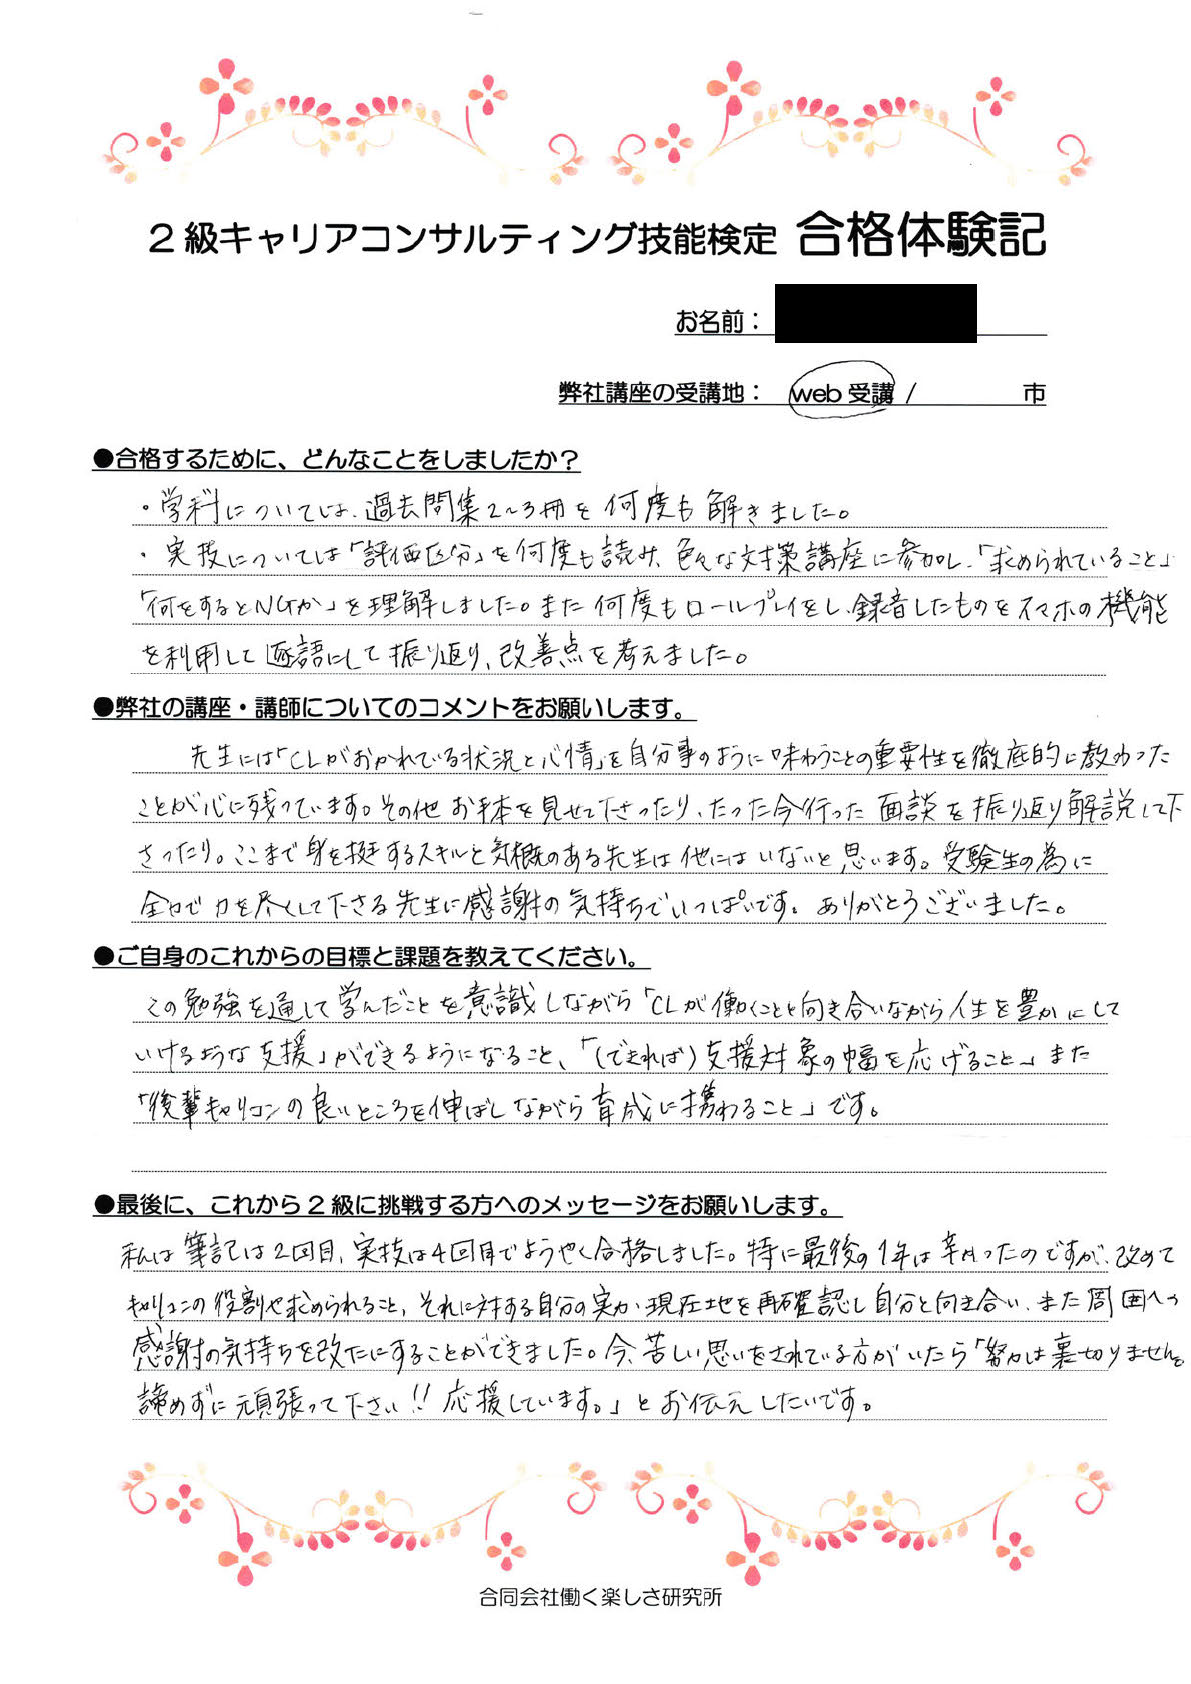 2級キャリアコンサルティング技能検定 合格体験記
お名前：
弊社講座の受講地： web受講 / 市
●合格するために、どんなことをしましたか？
・学科については、過去問集2～3冊を何度も解きました。
・実技については「評価区分」を何度も読み、色々な対策講座に参加し、「求められていること」
「何をするとNGか」を理解しました。また何度もロールプレイをし、録音したものをスマホの機能
を利用して逐語にして振り返り、改善点を考えました。
●弊社の講座・講師についてのコメントをお願いします。
先生には「CLがおかれている状況と心情」を自分事のように味わうことの重要性を徹底的に教わった
ことが心に残っています。その他お手本を見せて下さったり、たった今行った面談を振り返り解説して下
さったり。ここまで身を挺するスキルと気概のある先生は他にはいないと思います。受験生の為に
全力で力を尽くして下さる先生に感謝の気持ちでいっぱいです。ありがとうございました。
●ご自身のこれからの目標と課題を教えてください。
この勉強を通して学んだことを意識しながら「CLが働くことと向き合いながら人生を豊かにして
いけるような支援」ができるようになること、「（できれば）支援対象の幅を広げること」また
「後輩キャリコンの良いところを伸ばしながら育成に携わること」です。
●最後に、これから2級に挑戦する方へのメッセージをお願いします。
私は筆記は2回目、実技は4回目でようやく合格しました。特に最後の1年は辛かったのですが、改めて
キャリコンの役割や求められること、それに対する自分の実力、現在地を再確認し自分と向き合い、また周囲への
感謝の気持ちを改たにすることができました。今、苦しい思いをされている方がいたら「努力は裏切りません。
諦めずに頑張って下さい!!応援しています。」とお伝えしたいです。
合同会社働く楽しさ研究所